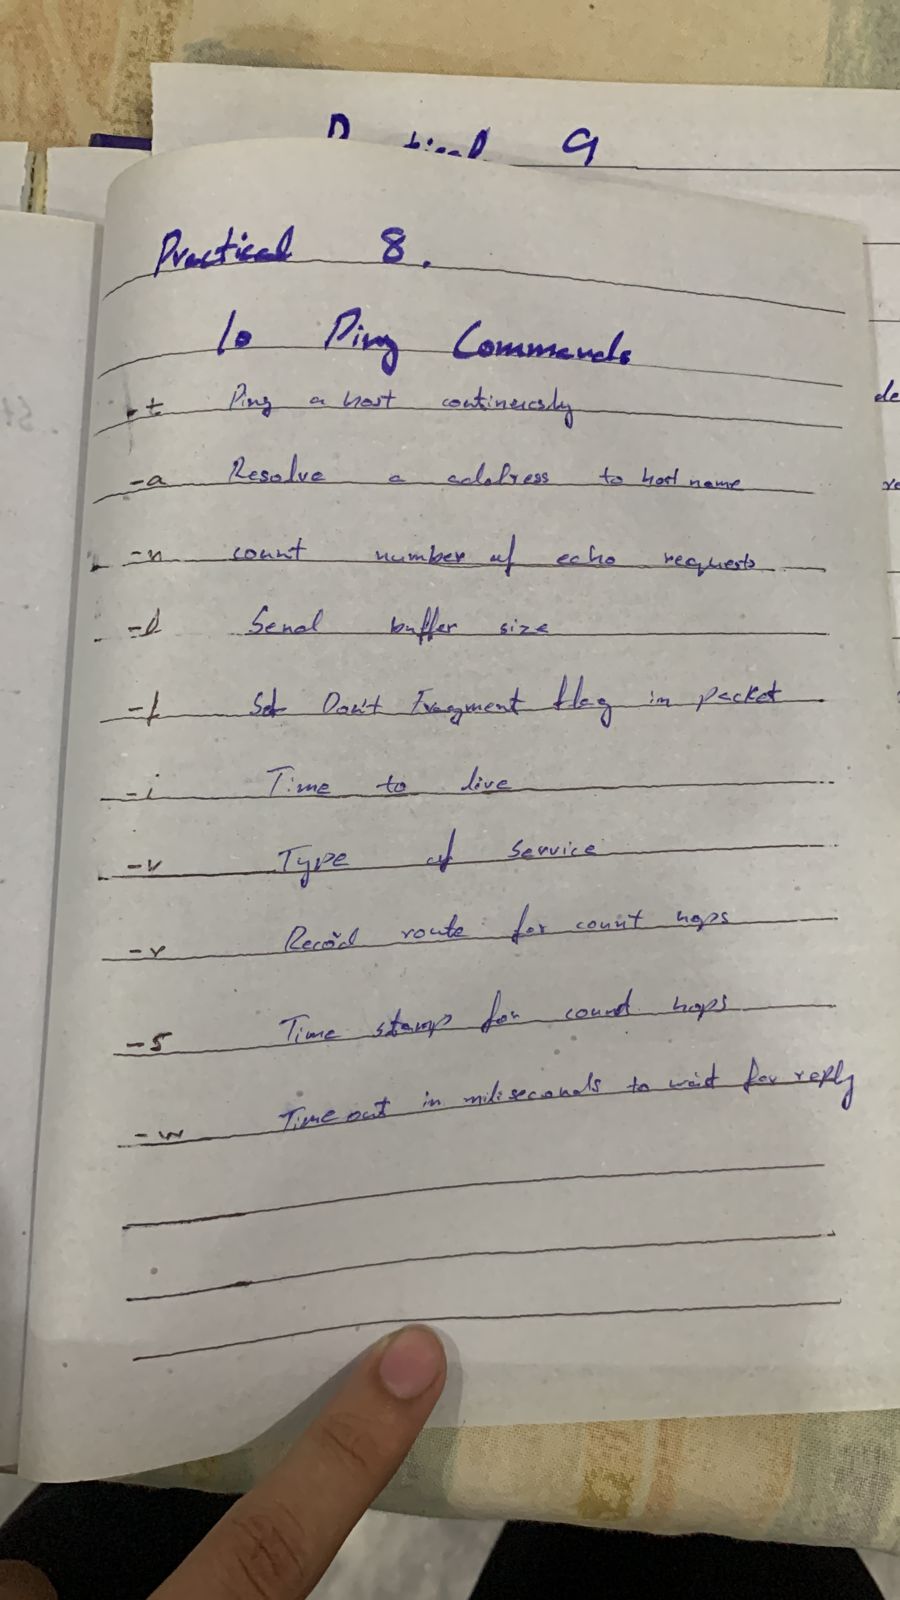 9
Practical 8.
10 Ping Commands
-t Ping a host continuously
-a Resolve a address to host name
-n count number of echo requests
-l Send buffer size
-f Set Don't Fragment flag in packet
-i Time to live
-v Type of Service
-r Record route for count hops
-s Time stamp for count hops
-w Timeout in miliseconds to wait for reply